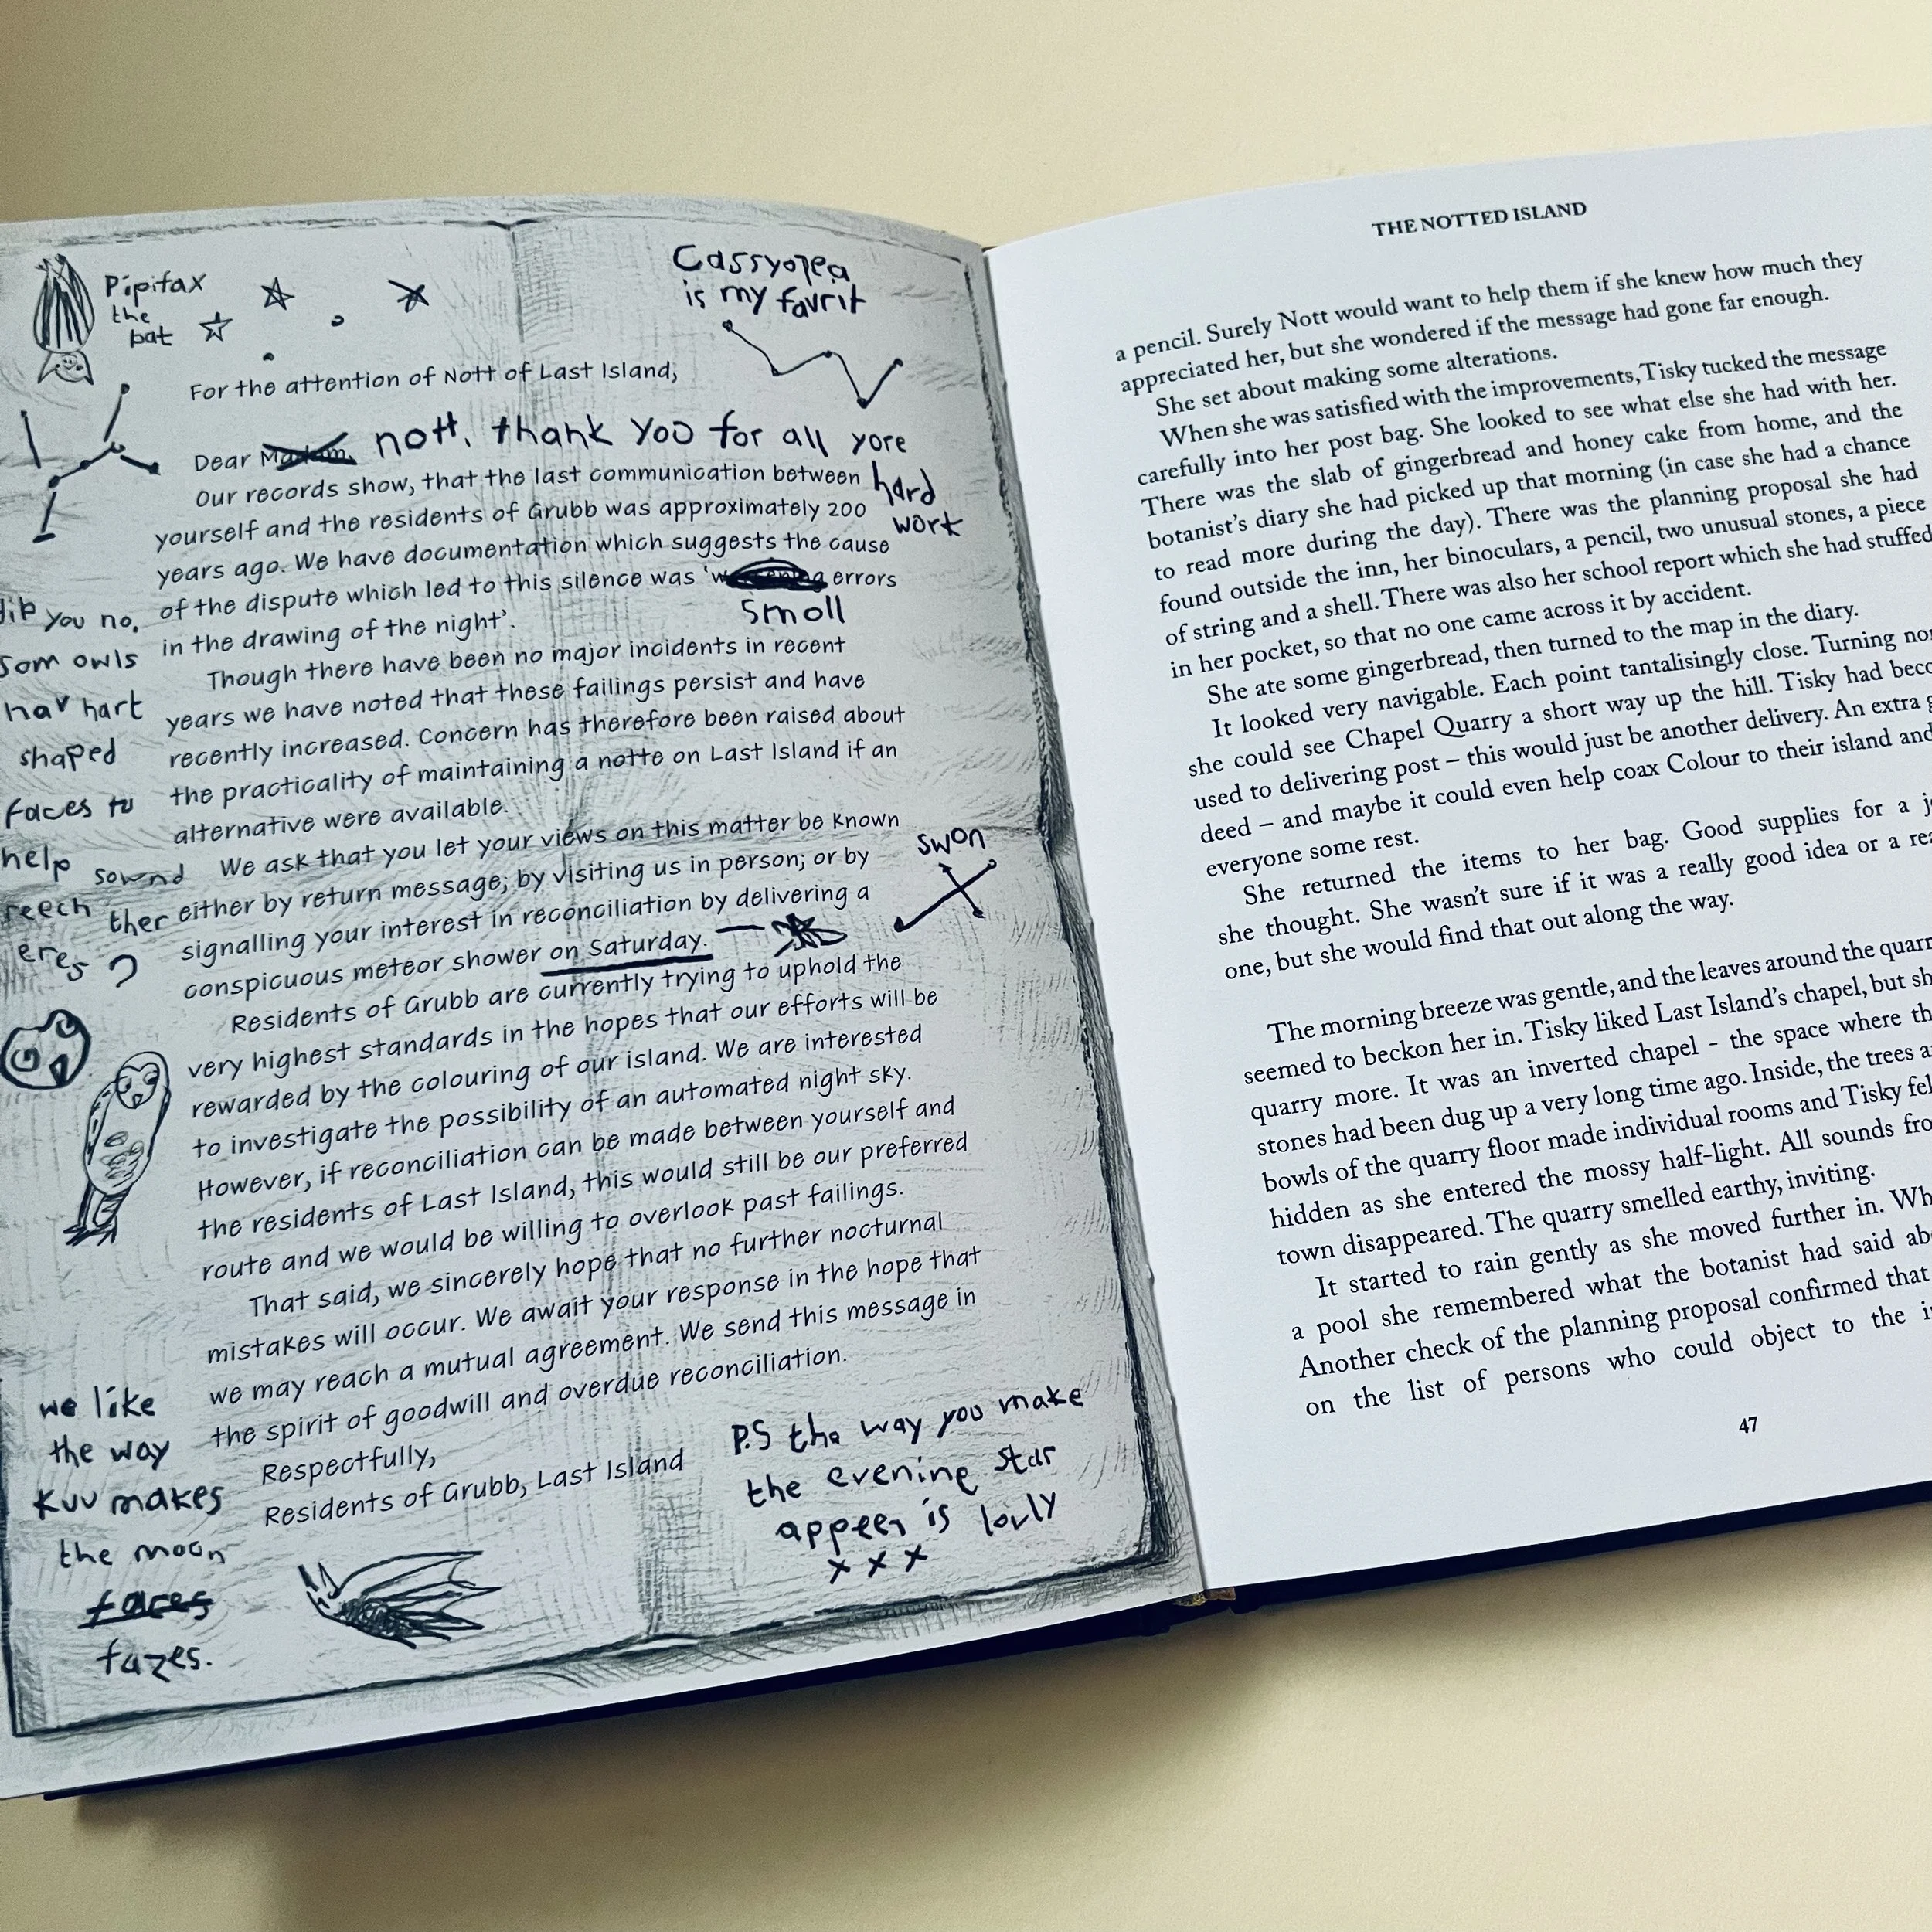 Pipifax
the
bat
Cassyopea
is my favrit
For the attention of Nott of Last Island,
Dear Madam, nott, thank YOO for all yore
hard
work
Our records show, that the last communication between
yourself and the residents of Grubb was approximately 200
years ago. We have documentation which suggests the cause
of the dispute which led to this silence was ‘ errors
smoll
in the drawing of the night’.
Though there have been no major incidents in recent
years we have noted that these failings persist and have
recently increased. Concern has therefore been raised about
the practicality of maintaining a notte on Last Island if an
alternative were available.
We ask that you let your views on this matter be known
either by return message; by visiting us in person; or by
signalling your interest in reconciliation by delivering a
conspicuous meteor shower on Saturday.
Residents of Grubb are currently trying to uphold the
very highest standards in the hopes that our efforts will be
rewarded by the colouring of our island. We are interested
to investigate the possibility of an automated night sky.
However, if reconciliation can be made between yourself and
the residents of Last Island, this would still be our preferred
route and we would be willing to overlook past failings.
That said, we sincerely hope that no further nocturnal
mistakes will occur. We await your response in the hope that
we may reach a mutual agreement. We send this message in
the spirit of goodwill and overdue reconciliation.
Respectfully,
Residents of Grubb, Last Island
you no,
som owls
hav hart
shaped
faces to
help sownd
reech ther
eres?
swon
we like
the way
Kuu makes
the moon
faces
fazes.
P.S the way you make
the evening star
appeer is lovly
x x x
THE NOTTED ISLAND
a pencil. Surely Nott would want to help them if she knew how much they
appreciated her, but she wondered if the message had gone far enough.
She set about making some alterations.
When she was satisfied with the improvements, Tisky tucked the message
carefully into her post bag. She looked to see what else she had with her.
There was the slab of gingerbread and honey cake from home, and the
botanist’s diary she had picked up that morning (in case she had a chance
to read more during the day). There was the planning proposal she had
found outside the inn, her binoculars, a pencil, two unusual stones, a piece
of string and a shell. There was also her school report which she had stuffed
in her pocket, so that no one came across it by accident.
She ate some gingerbread, then turned to the map in the diary.
It looked very navigable. Each point tantalisingly close. Turning
she could see Chapel Quarry a short way up the hill. Tisky had
used to delivering post – this would just be another delivery. An extra
deed – and maybe it could even help coax Colour to their island and
everyone some rest.
She returned the items to her bag. Good supplies for a
she thought. She wasn’t sure if it was a really good idea or a
one, but she would find that out along the way.
The morning breeze was gentle, and the leaves around the
seemed to beckon her in. Tisky liked Last Island’s chapel, but
quarry more. It was an inverted chapel - the space where
stones had been dug up a very long time ago. Inside, the trees
bowls of the quarry floor made individual rooms and Tisky
hidden as she entered the mossy half-light. All sounds
town disappeared. The quarry smelled earthy, inviting.
It started to rain gently as she moved further in.
a pool she remembered what the botanist had said
Another check of the planning proposal confirmed that
on the list of persons who could object to the
47